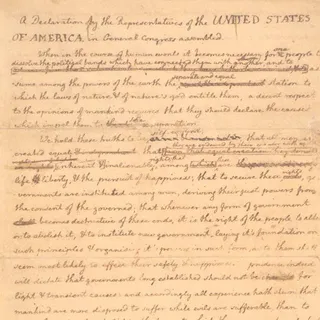 A Declaration by the Representatives of the UNITED STATES
OF AMERICA, in General Congress assembled.
When in the course of human events it becomes necessary for
one
people to
dissolve the political bands which have connected them with another, and to
separate and equal
sume among the powers of the earth the station to
which the laws of nature & of nature's god entitle them, a decent respect
to the opinions of mankind requires that they should declare the causes
which impel them to the
We hold these truths to be
that all men are
created equal
life & liberty, & the pursuit of happiness; that to secure these
governments are instituted among men, deriving their just powers from
the consent of the governed; that whenever any form of government
becomes destructive of these ends, it is the right of the people to alter
or to abolish it, & to institute new government, laying it's foundation on
such principles & organising it's powers in such form, as to them shall
seem most likely to effect their safety & happiness. prudence indeed
will dictate that governments long established should not be changed for
light & transient causes: and accordingly all experience hath shewn that
mankind are more disposed to suffer while evils are sufferable, than to